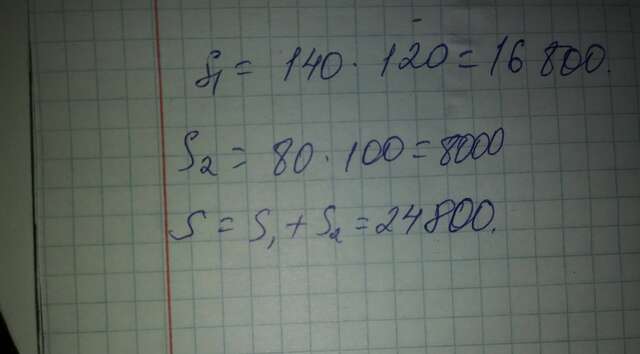 S₁ = 140 · 120 = 16 800.
S₂ = 80 · 100 = 8000
S = S₁ + S₂ = 24800.